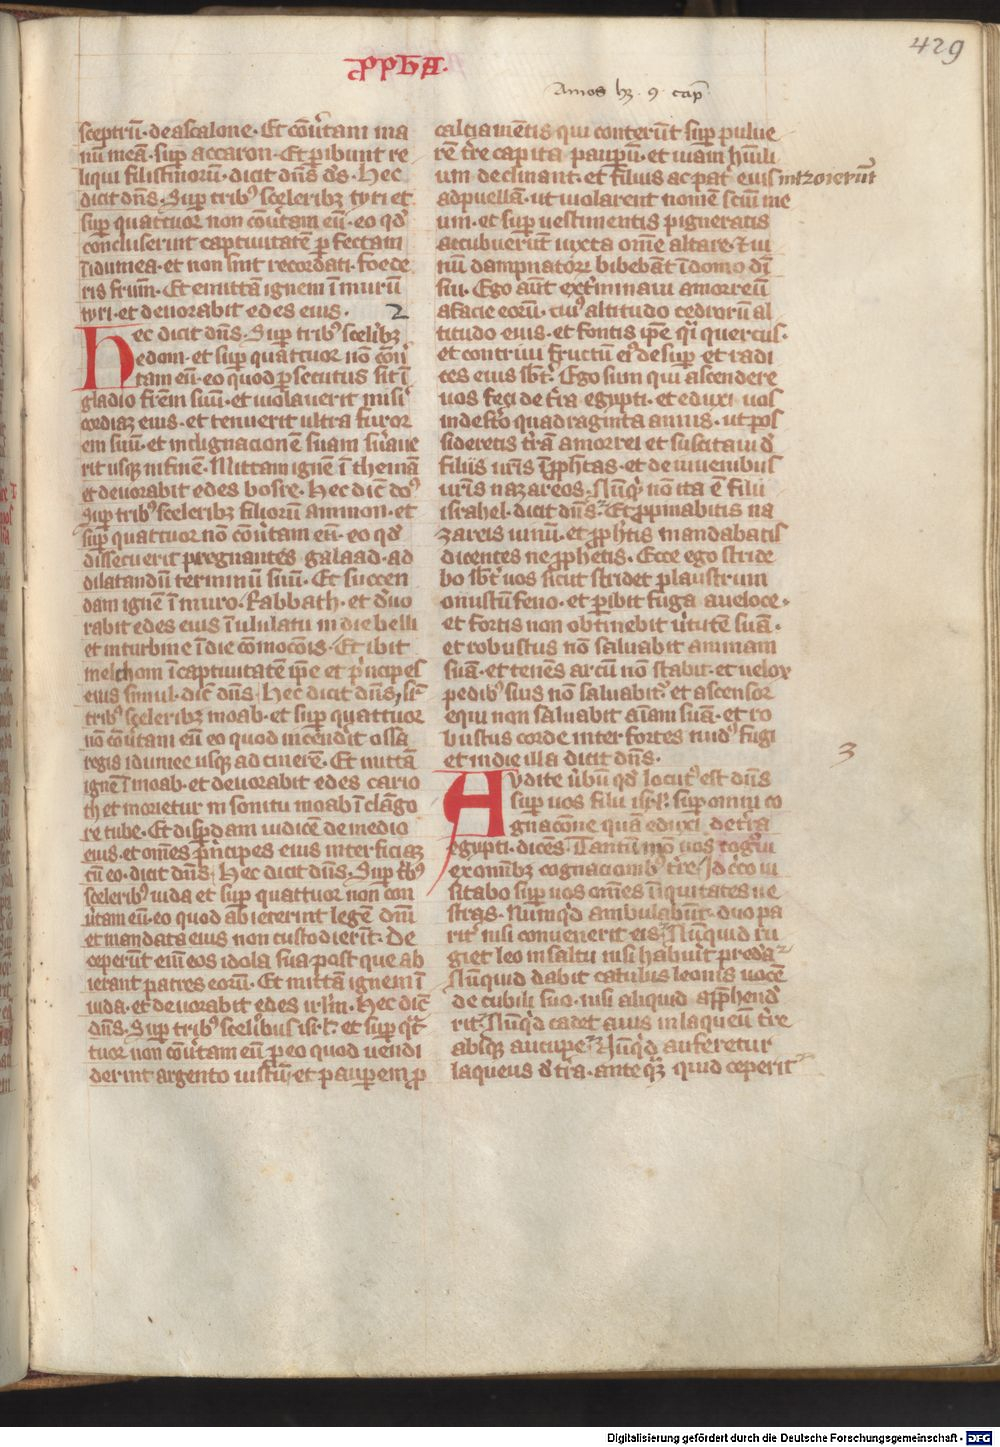 429
ꝓpħA.
Amos hꝫ . 9 . cap̄
sceptrū . de ascalone . Et cōu͛tam ma
nū meā . suꝑ accaron . Et ꝑibunt re
liqui filistinorū . dicit dn̄s ds̄ . Hec
dicit dn̄s . Suꝑ tribꝰ sceleribꝫ tyri et
suꝑ quattuor non cōu͛tam eū . eo qd̓
concluserint captiuitatē ꝑfectam
ī idumea . et non sint recordati . foede
ris frūm . Et emittā ignem ī murū
tyri . et deuorabit edes eius .
2
Hec dicit dn̄s . Suꝑ tribꝰ scel̓ibꝫ
edom . et suꝑ quattuor nō cōu͛
tam eū . eo quod ꝑsecutus sit ī
gladio frēm suū . et uiolauerit mis̓i
cordiaꝫ eius . et tenuerit ultra furor
em suū . et indignacionē suam s̓uaue
rit usqꝫ in finē . Mittam ignē ī themā
et deuorabit edes bosre . Hec dic̄ do͛s
Suꝑ tribꝰ sceleribꝫ filiorū ammon . et
suꝑ quattuor nō cōu͛tam eū . eo qd̓
dissecuerit pregnantes galaad . ad
dilatandū terminū suū . Et succen
dam ignē ī muro . Rabbath . et d̓uo
rabit edes eius ī ululatu in die belli
et inturbine ī die cōmocōis . Et ibit
melchom ī captiuitatē ip̄e et p͛ncipes
eius simul . dic̄ dn̄s . Hec dicit dn̄s , s̄r
tribꝰ sceleribꝫ moab . et suꝑ quattuor
nō cōu͛tam eū eo quod incendit ossa
regis idumee usqꝫ ad cinerē . Et mittā
ignē ī moab . et deuorabit edes cario
th et morietur in sonitu moab ī clāgo
re tube . Et disꝑdam iudicē de medio
eius . et omēs p͛ncipes eius interficiaꝫ
cū eo . dicit dn̄s . Hec dicit dn̄s . Suꝑ t͛bꝰ
sceleribꝰ iuda et suꝑ quattuor non con
u͛tam eū . eo quod abiecerint legē dn̄i
et mandata eius non custodierūt . De
ceperūt eni͛ eos idola sua post que ab
ierant patres eorū . Et mittā ignem ī
iuda . et deuorabit edes ir̄lm̄ . Hec dic̄
dn̄s . Suꝑ tribꝰ scelibus isr̄l . et suꝑ qͣt
tuor non cōu͛tam eū ꝑ eo quod uendi
derint argento iustū . et pauꝑem ꝓ
calciamētis qui conterūt suꝑ pulue
rē t͛re capita pauꝑū . et uiam hūili
um declinant . et filius ac pat͛ eius introierūt
ad puellā . ut uiolarent nomē sc̄m me
um . et suꝑ uestimentis pigneratis
accubuerūt iuxta om̄e altare . ⁊ ui
nū dampnatorꝫ bibebāt ī domo di͛
sui . Ego aūt ext͛minaui amorreū
a facie eorū . cui͛ꝰ altitudo cedrorū al
titudo eius . et fortis ip̄e qͣi quercus .
et contriui fructū ei͛ꝰ desuꝑ et radi
ces eius sbt͛ . Ego sum qui ascendere
uos feci de t͛ra egypti . et eduxi uos
in desk͛to quadraginta annis . ut pos
sideretis t͛rā amorrei et suscitaui d̓
filiis ur̄is ꝓph͛tas . et de iuuenibus
ur̄is nazareos . Nūqͣ nō ita ē filii
israhel . dicit dn̄s . Et ꝓpinabitis na
zareis uinū . et ꝓph͛tis mandabatis
dicentes ne ꝓphetis . Ecce ego stride
bo sbt͛ uos sicut stridet plaustrum
onustū feno . et ꝑibit fuga a ueloce .
et fortis non obtinebit u͛tutē suā .
et robustus nō saluabit animam
suā . et tenēs arcū nō stabit . et uelox
pedibꝰ suis nō saluabit͛ . et ascensor
equi non saluabit aīam suā . et ro
bustus corde inter fortes nudꝰ fugi
et in die illa dicit dn̄s .
3
Audite u͛bū qd̓ locutꝰ est dn̄s
suꝑ uos filii isr̄l . suꝑ omni co
gnacōne quā eduxi de t͛ra
egypti . dicēs . Tantūmō uos cogͦui
ex omībꝫ cognacionibꝰ t͛re . Id c͛co ui
sitabo suꝑ uos omēs īiquitates ue
stras . Nūmqͥd ambulabūt duo pa
rit͛ nisi conuenerit eis . Nūquid ru
giet leo in saltu nisi habuit predā
Nūquid dabit catulus leonis uocē
de cubili suo . nisi aliquid app͛hend͛
rit . Nūqͥd cadet auis in laqueū t͛re
absqꝫ aucupe . Nūqͥd auferetur
laqueus d̓ t͛ra . ante qͣꝫ quid ceperit
Digitalisierung gefördert durch die Deutsche Forschungsgemeinschaft - DFG